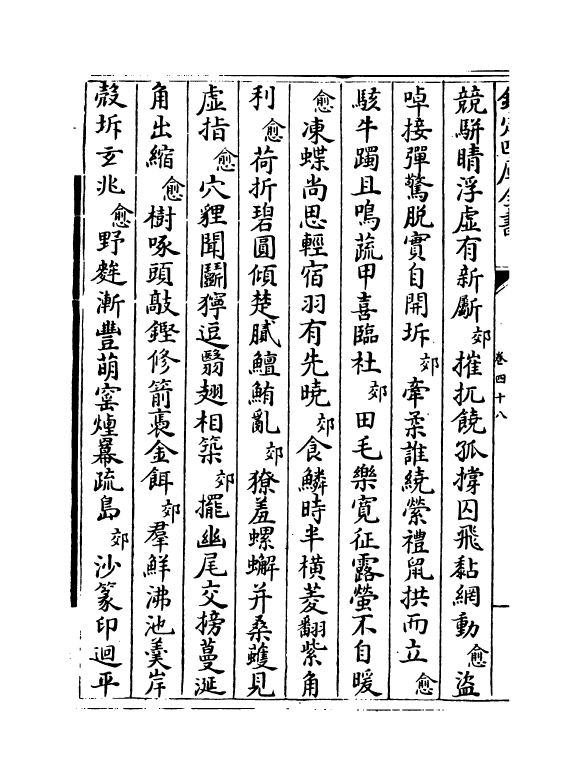 欽定四庫全書 卷四十八
競駢睛浮虛有新斸郊摧扤饒孤撐囚飛黏網動愈盜
啅接彈驚脫實自開坼郊牽柔誰繞縈禮鼠拱而立愈
駭牛躅且鳴蔬甲喜臨社郊田毛樂寬征露螢不自暖
愈凍蝶尚思輕宿羽有先曉郊食鱗時半横菱翻紫角
利愈荷折碧圓傾楚膩鱣鮪亂郊獠羞螺蠏并桑蠖見
虛指愈穴貍聞鬭獰逗翳翅相築郊擺幽尾交搒蔓涎
角出縮愈樹啄頭敲鏗修箭裊金餌郊羣鮮沸池羹岸
殼坼玄兆愈野麰漸豐萌窑煙冪疏島郊沙篆印迴平